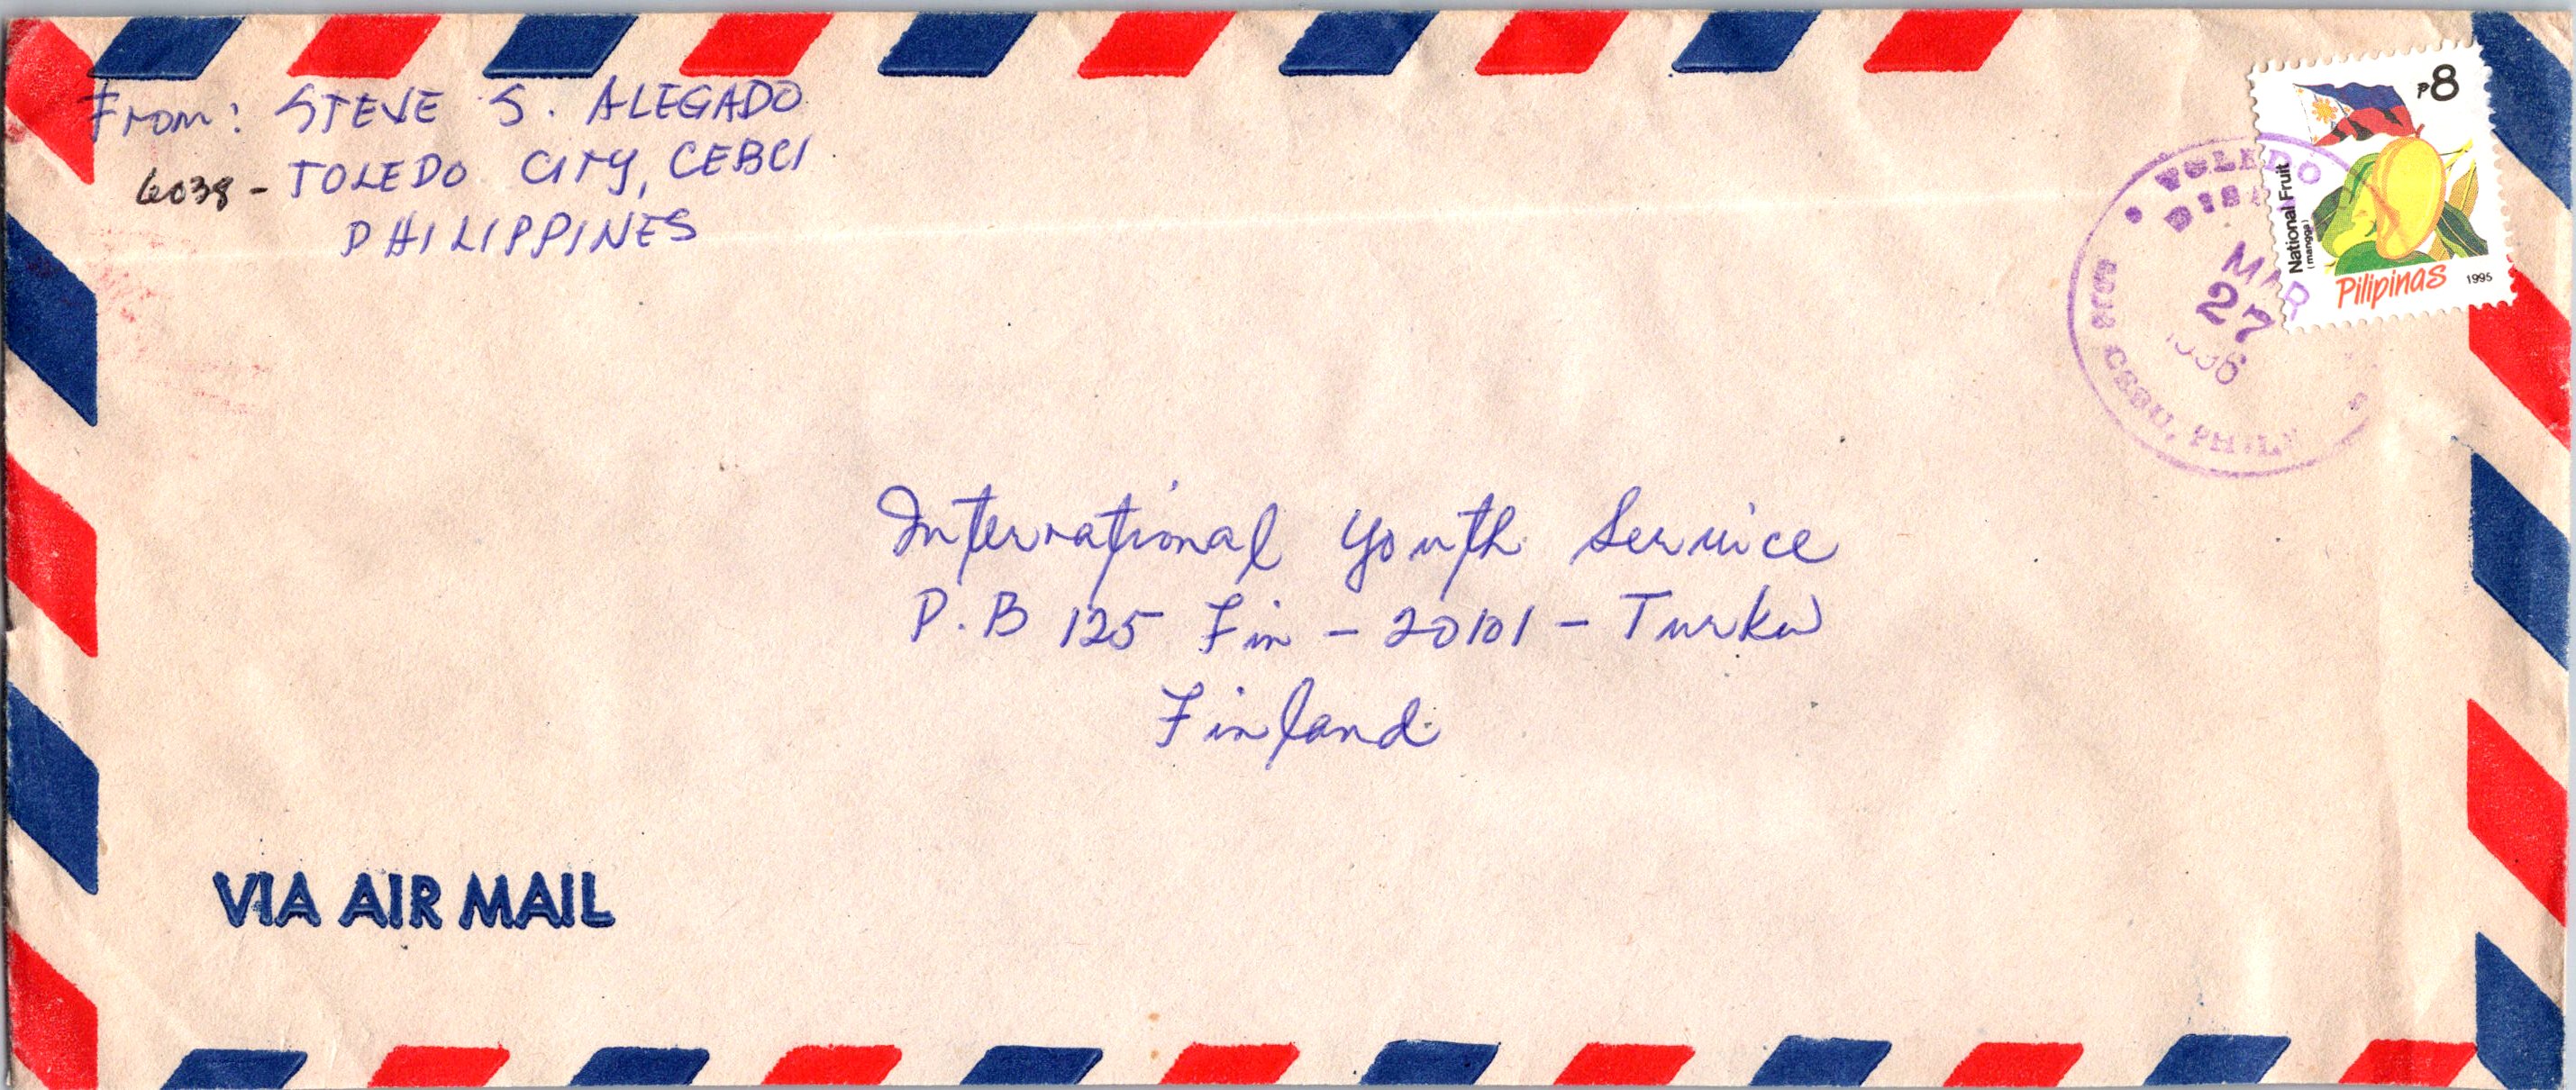 From: STEVE S. ALEGADO
6038 - TOLEDO CITY, CEBU
PHILIPPINES
₱8
National Fruit
(mangga)
Pilipinas 1995
TOLEDO
MAR
27
1996
CEBU, PHIL
International Youth Service
P.B 125 Fin - 20101 - Turku
Finland
VIA AIR MAIL